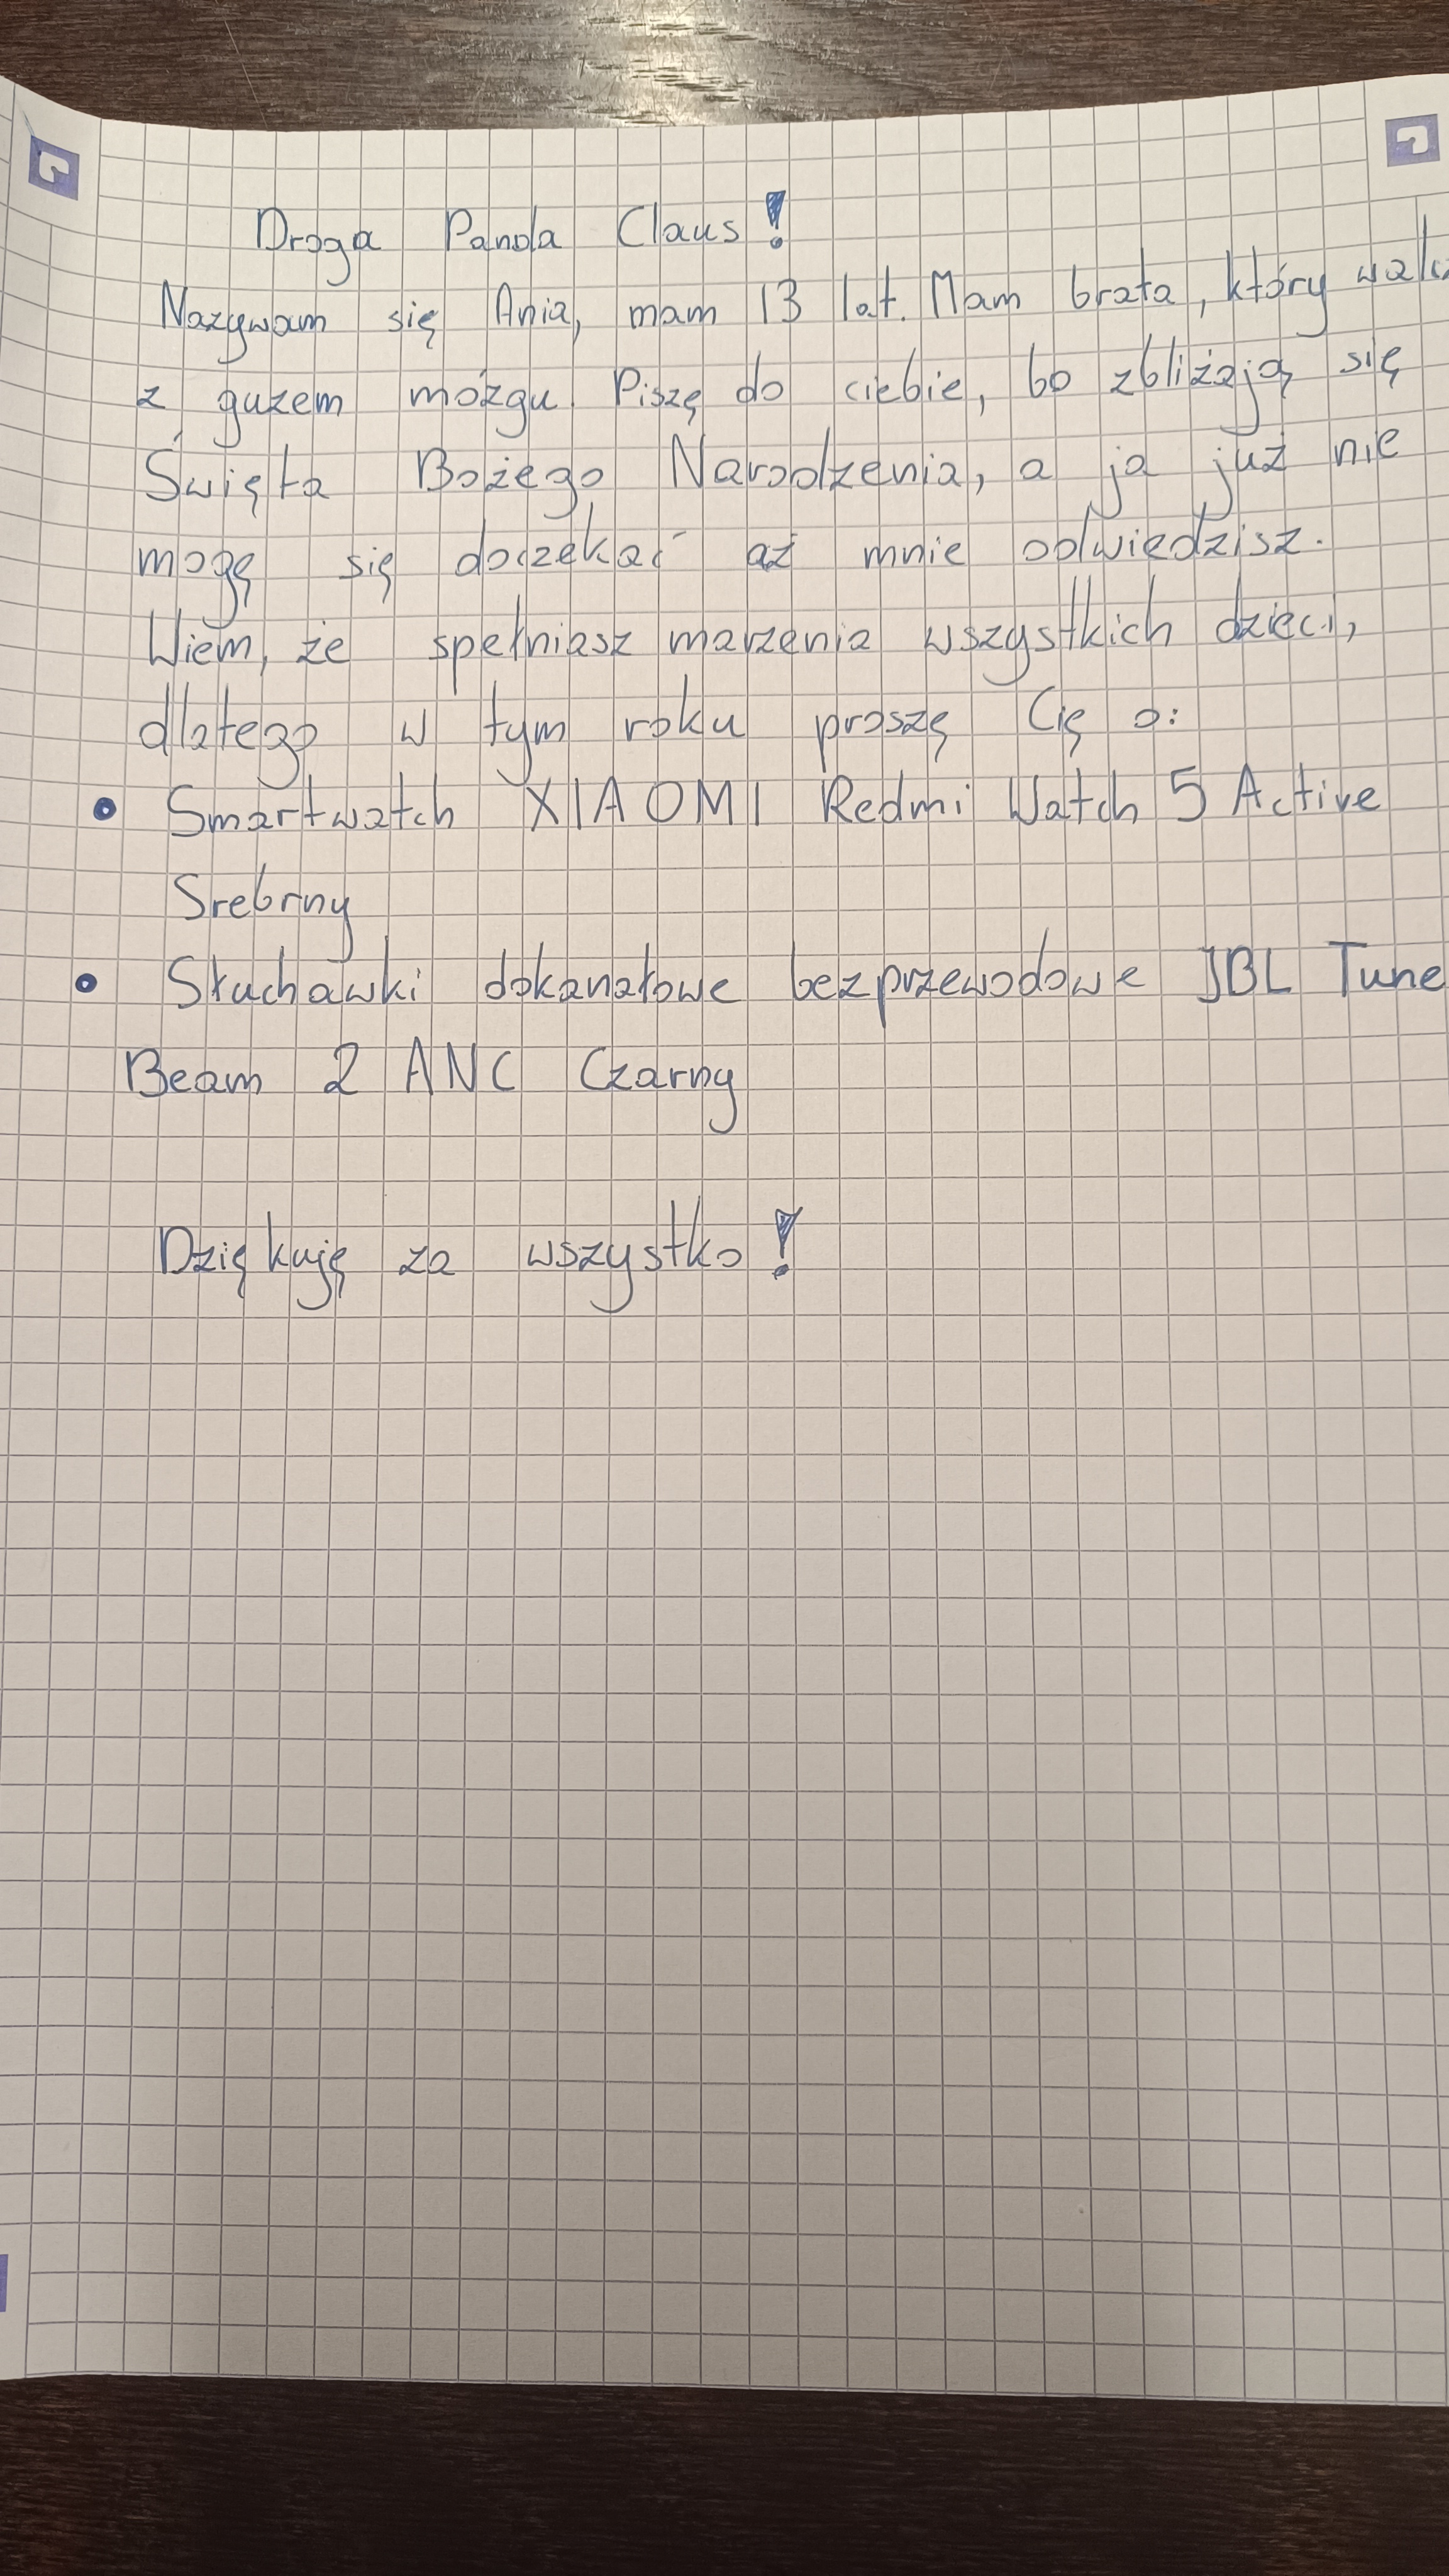 Droga Panda Claus!
Nazywam się Ania, mam 13 lat. Mam brata, który
z guzem mózgu. Piszę do ciebie, bo zbliżają się
Święta Bożego Narodzenia, a ja już nie
mogę się doczekać aż mnie odwiedzisz.
Wiem, że spełniasz marzenia wszystkich dzieci,
dlatego w tym roku proszę Cię o:
• Smartwatch XIAOMI Redmi Watch 5 Active
Srebrny
• Słuchawki dokanałowe bezprzewodowe JBL Tune
Beam 2 ANC Czarny
Dziękuję za wszystko!